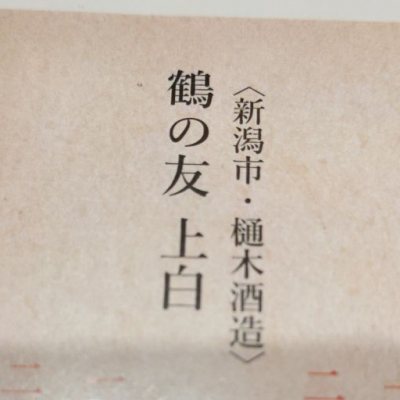 〈新潟市・樋木酒造〉
鶴の友 上白